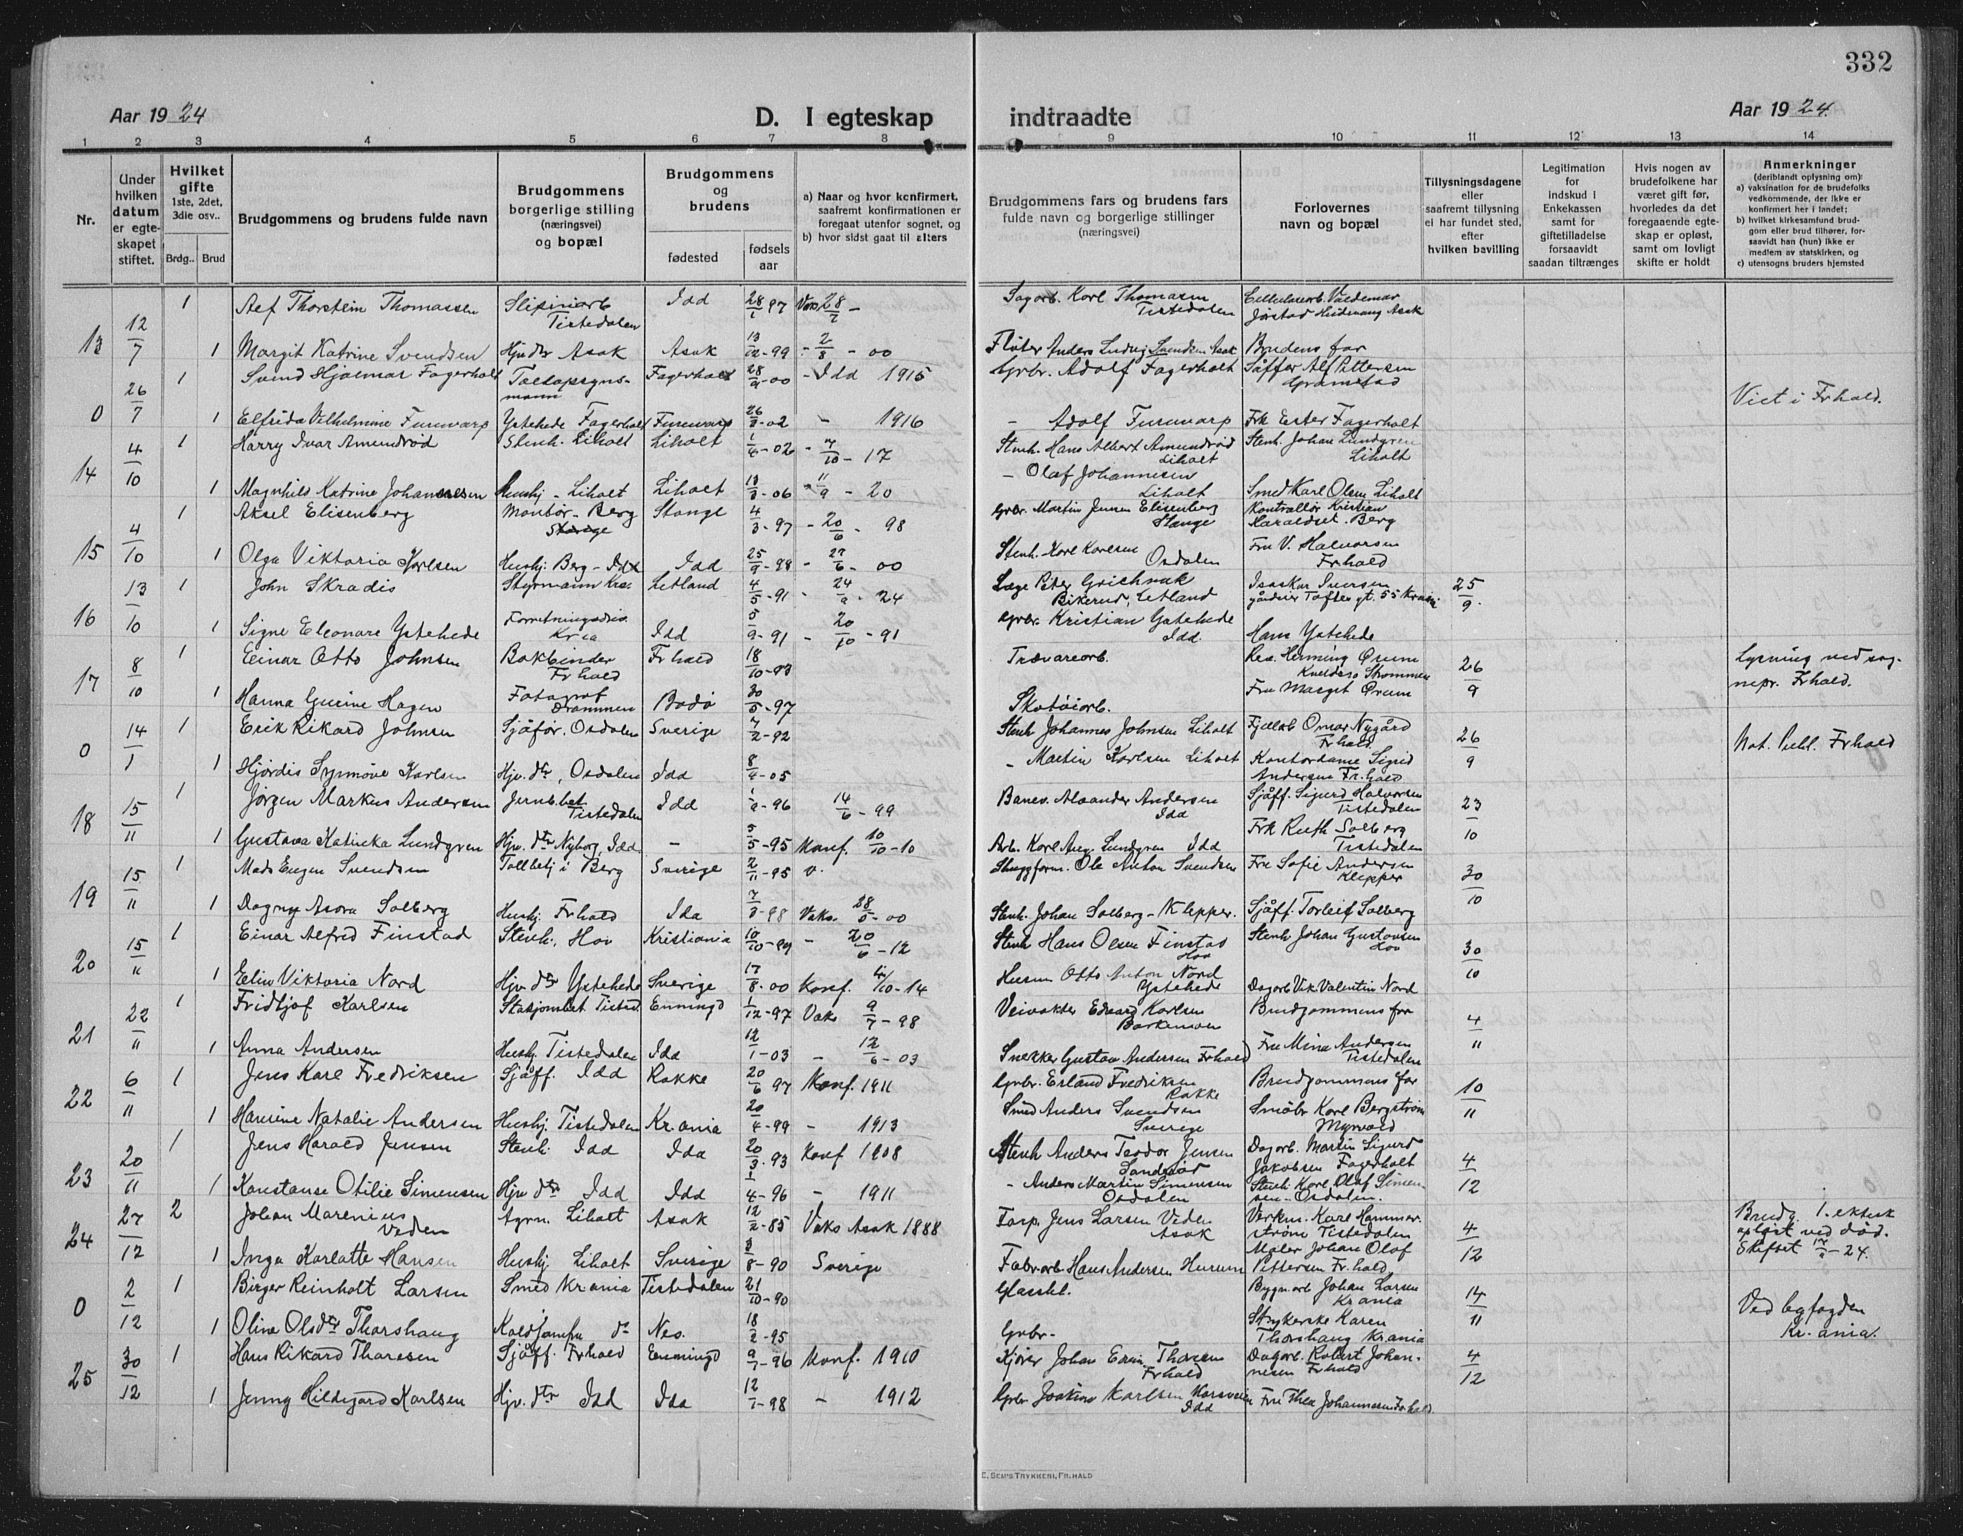 332
Aar 1924 D. I egteskap indtraadte Aar 1924.
1 2 3 4 5 6 7 8 9 10 11 12 13 14
Nr.
Under hvilken datum er egteskapet stiftet.
Hvilket gifte 1ste, 2det, 3die osv..
Brdg.. Brud
Brudgommens og brudens fulde navn
Brudgommens borgerlige stilling (næringsvei) og bopæl
Brudgommens og brudens
fødested
fødsels aar
a) Naar og hvor konfirmert, saafremt konfirmationen er foregaat utenfor sognet, og
b) hvor sidst gaat til alters
Brudgommens fars og brudens fars fulde navn og borgerlige stillinger (næringsvei)
Forlovernes navn og bopæl
Tillysningsdagene eller saafremt tillysning ei har fundet sted, efter hvilken bevilling
Legitimation for indskud i Enkekassen samt for giftetilladelse forsaavidt saadan tiltrænges
Hvis nogen av brudefolkene har været gift før, hvorledes da det foregaaende egteskap er opløst, samt om lovligt skifte er holdt
Anmerkninger (deriblandt oplysning om):
a) vaksination for de brudefolks vedkommende, der ikke er konfirmert her i landet;
b) hvilket kirkesamfund brudgom eller brud tilhører, forsaavidt han (hun) ikke er medlem av statskirken, og
c) utensogns bruders hjemsted
13 12/7 1 Alf Thorstein Thomassen Slipiriarb Tistedalen Idd 97 Karl Thomasen Tistedalen Valdemar Jørstad Asak
1 Margit Katrine Svendsen Asak Asak 13/12-99 2/8 - 00 Fløter Anders Ludvig Svendsen Asak Brudens far
0 26/7 1 Svend Hjalmar Fagerholt Fagerholt -00 - Idd 1915 Grbr. Adolf Fagerholt Alf Pettersen Viet i Frhald.
1 Elfrida Vilhelmine Furuvarp Ystehede Fagerholt Furuvarp 26/ -02 - 1916 - Adolf Furuvarp Frk Ester Fagerholt
14 4/10 1 Harry Ivar Amundrød Stenh. Liholt Liholt -02 /10 - 17 Stenh. Hans Albert Amundrød Liholt Stenh. Johan Lundgren Liholt
1 Magnhild Katrine Johannesen Hushj - Liholt Liholt -06 11/9 - 20 - Olaf Johannesen Liholt Smed Karl Olsen Liholt
15 4/10 1 Aksel Elisenberg Montør - Berg Stange 4/3-97 - 20/6 - 98 Grbr. Martin Jensen Elisenberg Stange Kontrollør Kristian Haraldset. Berg
1 Olga Viktoria Karlsen Hushj. Berg - Idd Idd 25/9-98 - 27/6 - 00 Stenh. Karl Karlsen Osdalen Fru V. Halvorsen Frhald
16 13/10 1 John Skradis Styrmann Kra Letland 4/5-91 24 - 24 Peter Letland Isaskar Iversen 25/9.
1 Signe Eleonare Ystehede Kria Idd 5/9-91 - 20/10 - 91 Grbr. Kristian Ystehede Idd. Hans Ystehede
17 8/10 1 Einar Otto Johnsen Bokbinder Frhald Frhald 18/10-98 Trævareorb. Henning Ørum Strømmen 26/9
1 Hanna Gurine Hagen Fotograf Drammen Bodø /5-97 Skotøiorb. Fru Margit Ørum Lysning ved sognepr. Frhald.
0 14/1 1 Erik Rikard Johnsen Sjåfør. Osdalen Sverige 7/2-92 Stenh Johannes Johnsen Liholt Omar Nygård Frhald 26/9 Not. Publ. Frhald
1 Hjørdis Synnøve Karlsen Hjv. dtr, Osdalen Idd 8/4-05 - Martin Karlsen Liholt Kontordame Sigrid Andersen Fr.hald
18 15/11 1 Jørgen Markus Andersen Jernb.bet Tistedalen Idd 1/9-96 14/6 - 99 Banev. Alexander Andersen Idd Sjåff. Sigurd Halvorsen Tistedalen 23/10
1 Gustava Katinka Lundgren Hjv. dtr Nyborg, Idd - 5/5-95 Konf. 10/10-10 Arb. Karl Aug Lundgren Idd Frk Ruth Solberg Tistedalen
19 15/11 1 Mads Eugen Svendsen Tollbetj i Berg Sverige 2/11-95 v. Ole Anton Svendsen Fru Sofie Andersen Klepper 30/10
1 Dagny Asora Solberg Hushj. Frhald Idd 7/ -98 Vaks. 28/ -00 Stenh. Johan Solberg - Klepper. Sjåff. Torleif Solberg
20 15/11 1 Einar Alfred Finstad Stenh. Hov Kristiania 10/10-89 - 20/6-12 Stenh Hans Olsen Finstad Hov Stenh Johan Gustavsen Hov 30/10
1 Elin Viktoria Nord Hjv dtr Ystehede Sverige 17/8-00 Konf. /10-14 Husm Otto Anton Nord Ystehede Dagorb Vik. Valentin Nord
21 22/11 1 Fridtjof Karlsen Stasjonbet Tisted. Enningd 1/12-97 Vaks 9/7 - 98 Veivokter Edvard Karlsen Brudgommens far 4/11
1 Anna Andersen Hushj. Tistedalen Idd 12/1-03 - 12/6-03 Snekker Gustav Andersen Frhald Fru Mina Andersen Tistedalen
22 6/11 1 Jens Karl Fredriksen Sjåff. Idd Rakke 20/6 97 Konf. 1911 Grbr. Erland Fredriksen Rakke Brudgommens far 10/11
1 Hanine Natalie Andersen Hushj. Tistedalen Kr.ania 20/4-99 - 1913 Smed Anders Svendsen Sverige Karl Bergstrøm Myrvold
23 20/11 1 Jens Harald Jensen Stenh. Idd Idd 20/3-93 Konf 1908 Stenh Anders Teodor Jensen Dagorb. Martin Sigurd Jakobsen Fagerholt 4/12
1 Konstanse Otilie Simensen Hjv dtr Idd Idd 1/4-96 - 1911 - Anders Martin Simensen Osdalen Stenh. Karl Olaf Simensen - Osdalen.
24 27/12 2 Johan Marenius Veden Agrn. Liholt Asak 12/2-85 Vaks Asak 1888 Jens Larsen Veden Asak Verkm. Karl Hammerstrøm Tistedalen 4/12
1 Inga Karlotte Hansen Hushj Liholt Sverige 3/8-90 Sverige Fabr.arb. Hans Andersen Maler Johan Olof Pettersen Fr.hald Brudg. 1. ektesk opløst ved død. Skiftet -24.
0 2/12 1 Birger Reinholt Larsen Smed Kr.ania Tistedalen 21/10-90 Glasshl. Bygn.orb Johan Larsen Kr.ania 14/11
1 Oline Olsdtr Thorshaug Koldjomfru do Nes. 18/2-95 Grbr. Strykerske Karen Thorshaug Kr.ania Ved byfogden Kr.ania.
25 30/12 1 Hans Rikard Thoresen Sjåff. Frhald Enningd 9/7-96 Konf. 1910 Kjører Johan Edvin Thoresen Frhald Dagorb. Robert Johannesen Frhald 4/12
1 Jenny Hildegard Karlsen Hjv. dtr Idd Idd 12/1-98 - 1912 Grbr Joakim Karlsen Idd Fru Thea Johannesen Frhald.
E. SEM'S TRYKKERI, FR.HALD